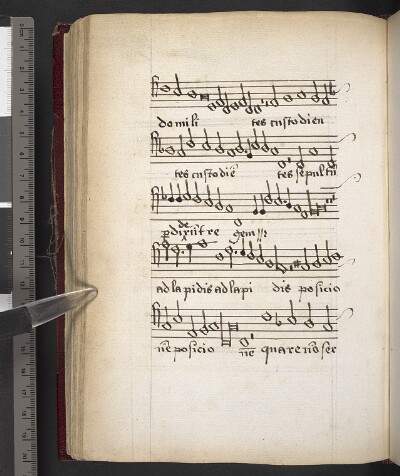 do mili tes custodien
tes custodiē tes sepultū
ꝑdiderūt re gem
ad lapidis ad lapi dis posicio
nē posicio nē quare nō ser